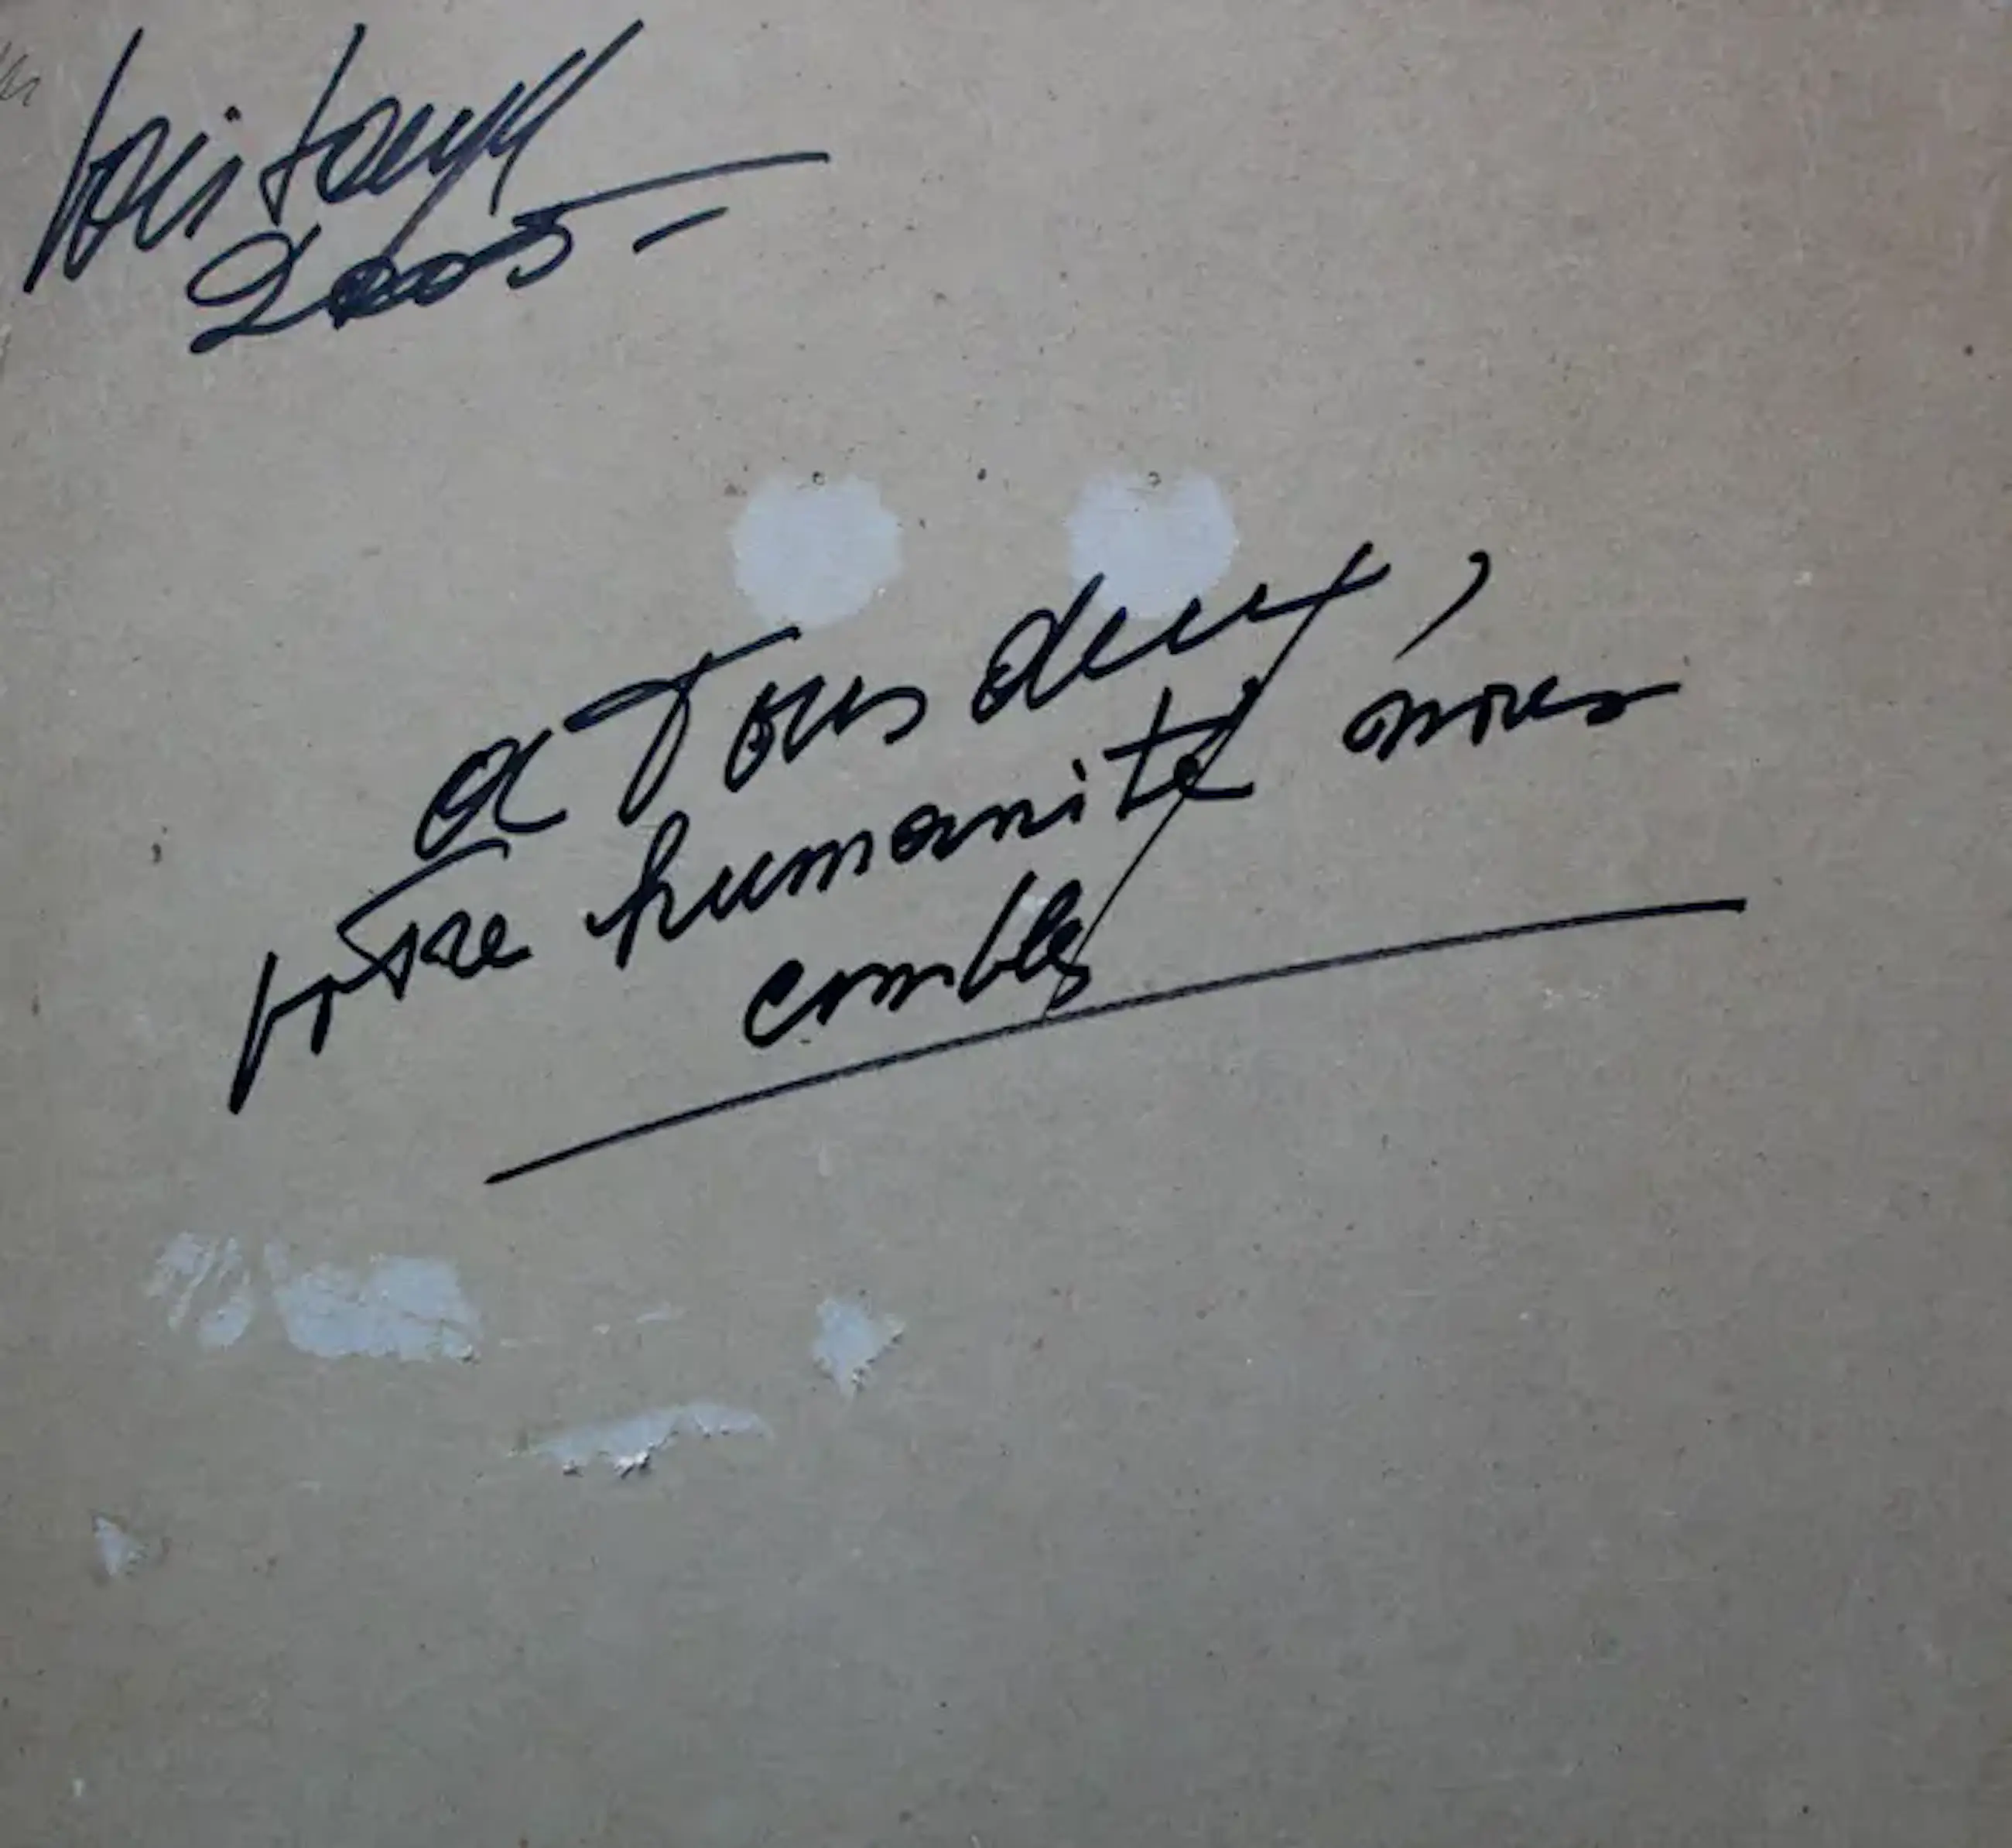 2005 -
a Tous deux,
votre humanité nous
comble